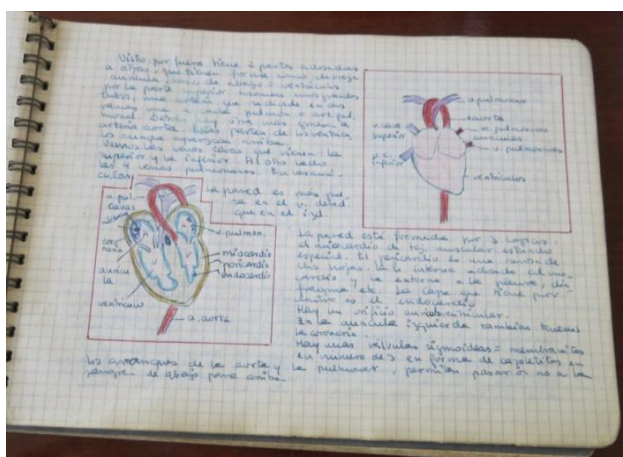 Visto por fuera tiene 2 partes adosadas
a otras, que tienen forma como de oreja
aurícula de abajo = ventrículos
por la parte superior asoman unos grandes
tubos, una arteria que se divide en dos
vemos una a cada pulmón = art. pul.
monal. Detrás hay otra más gruesa =
arteria aorta. parten de los ventrícu
los aunque parezca arriba.
Vemos las venas cavas que vienen. La
superior y la inferior. Al otro lado
las 4 venas pulmonares. En las aurí-
culas.
La pared es más
sa en el v.
que en el izd.
a. pul
cavas
aurícu
la
ventrículo
v. pulmon.
miocardio
pericardio
endocardio
a. aorta
a. pulmonar
aorta
v. cava
superior
v. pulmonares
aurículas
v. pulmonares
v. c.
inferior
ventrículos
La pared está formada por 3 capas:
el miocardio de tej. muscular estriado
especial. El pericardio es una serosa de
dos hojas. La interna adosada al mio-
cardio y la externa a la pleura, dia
fragma etc. La capa que tiene por
dentro es el endocardio
Hay un orificio auriculoventricular.
En la aurícula izquierda también tenemos
la coronaria.
Hay unas válvulas sigmoideas = membranitas
en número de 3 en forma de
los arranques de la aorta y la pulmonar, permiten pasar no a la
sangre de abajo para arriba